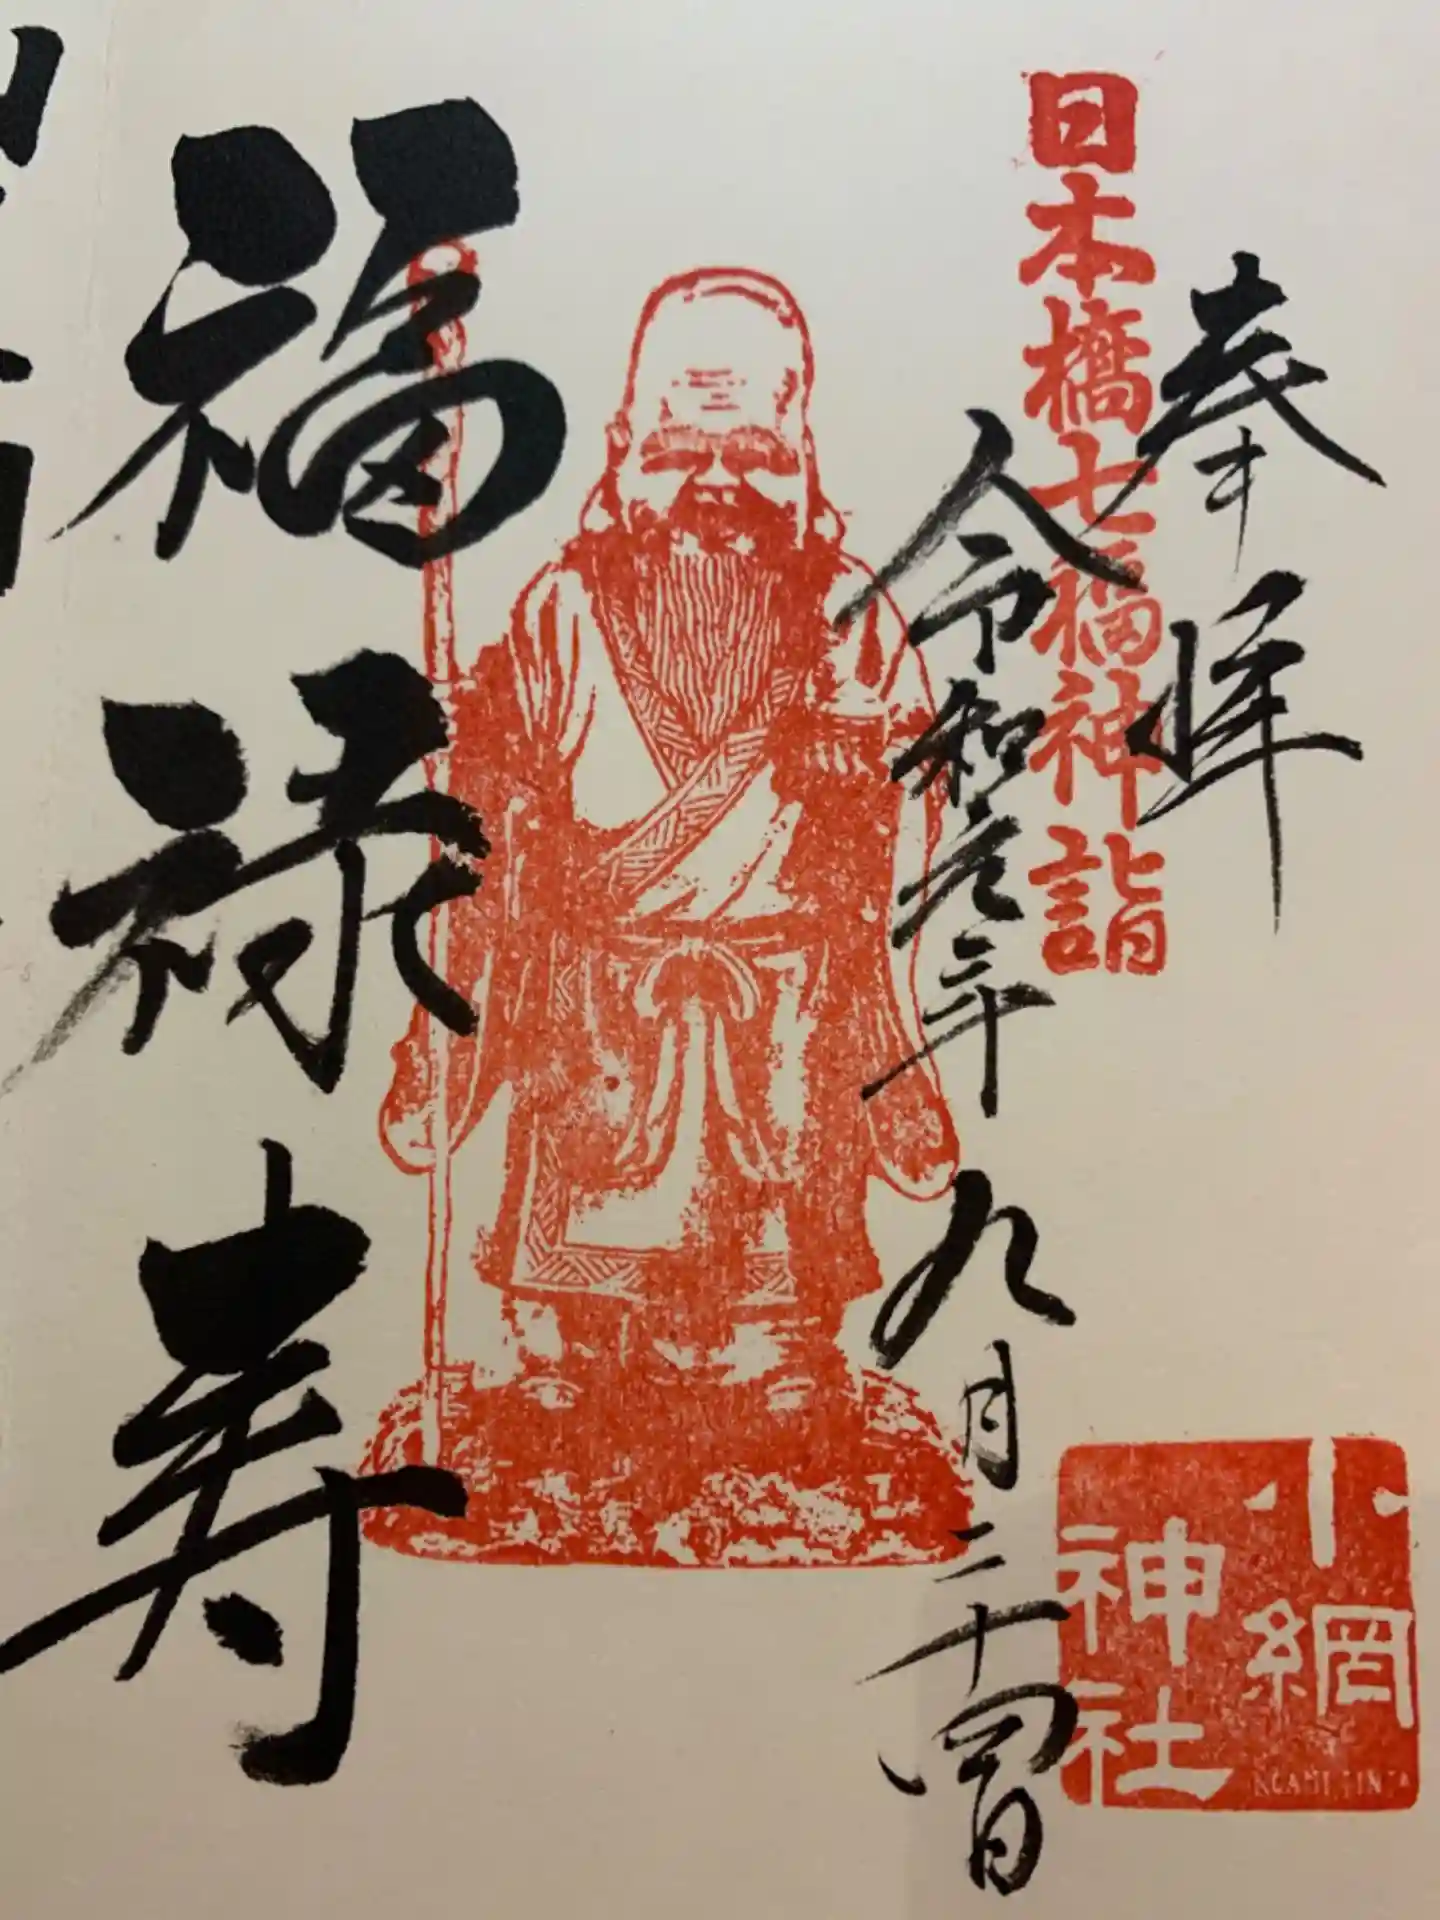 奉拝
日本橋七福神詣
令和元年九月二十四日
福禄寿
小網
神社